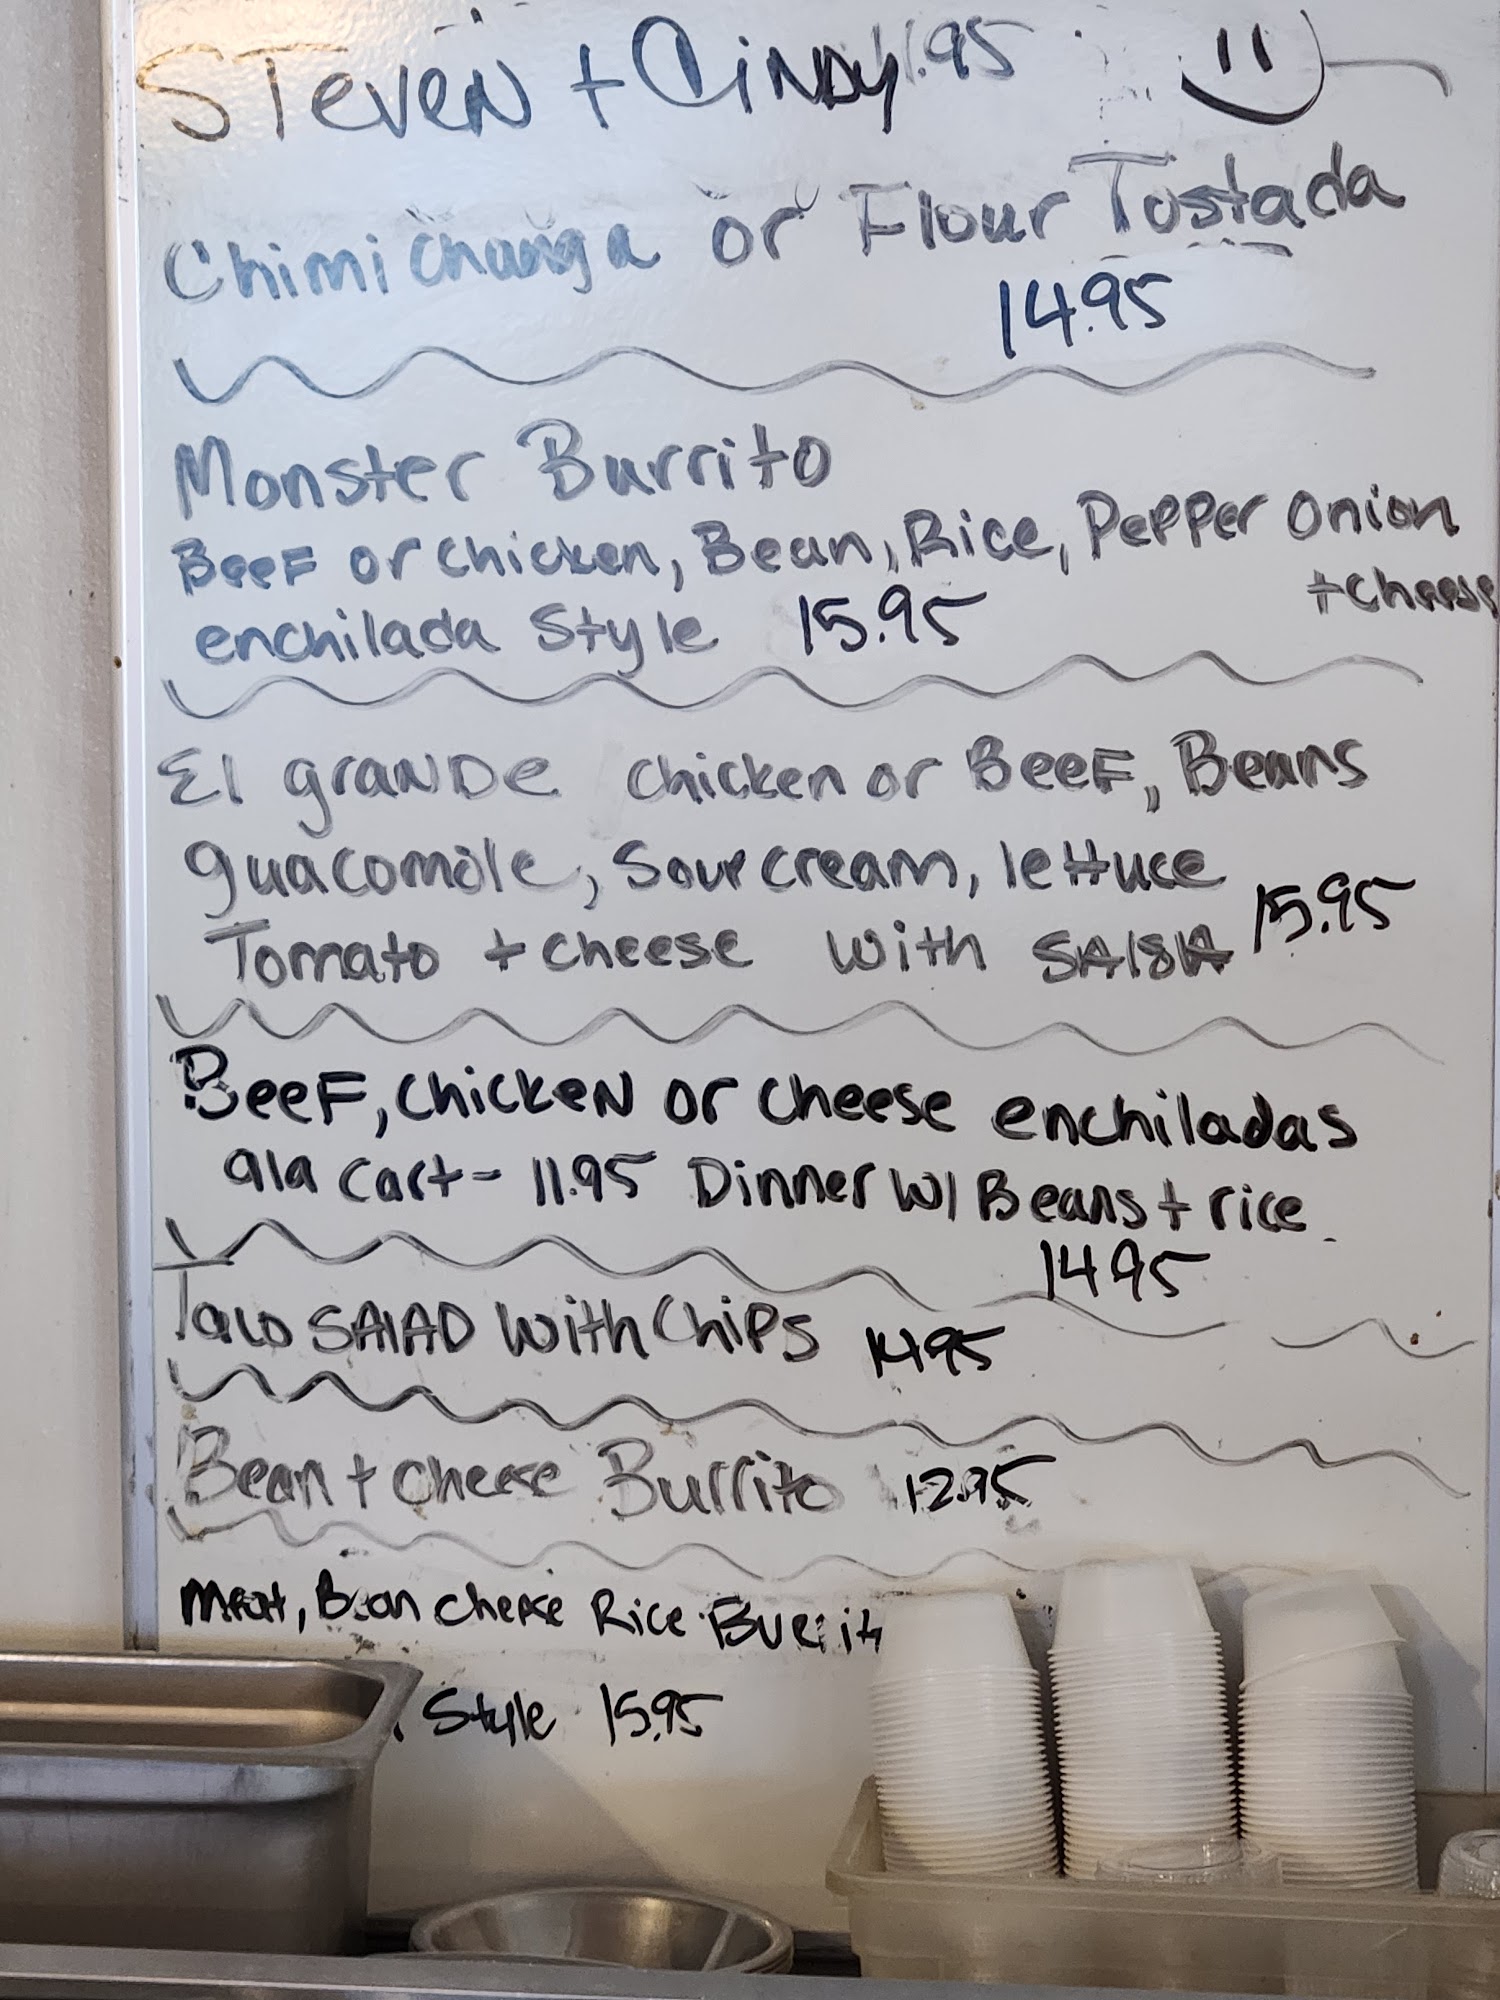 STeveN + CiNDy 1.95
Chimichanga or Flour Tostada
14.95
Monster Burrito
BeeF or chicken, Bean, Rice, Pepper onion
+ cheese
enchilada Style 15.95
El graNDe chicken or BeeF, Beans
guacomole, Sour cream, lettuce
Tomato + cheese with SAlSA 15.95
BeeF, chickeN or cheese enchiladas
ala cart - 11.95 Dinner w/ Beans + rice
14.95
Taco SAlAD with Chips 14.95
Bean + cheese Burrito 12.95
Meat, Bean cheese Rice
Style 15.95